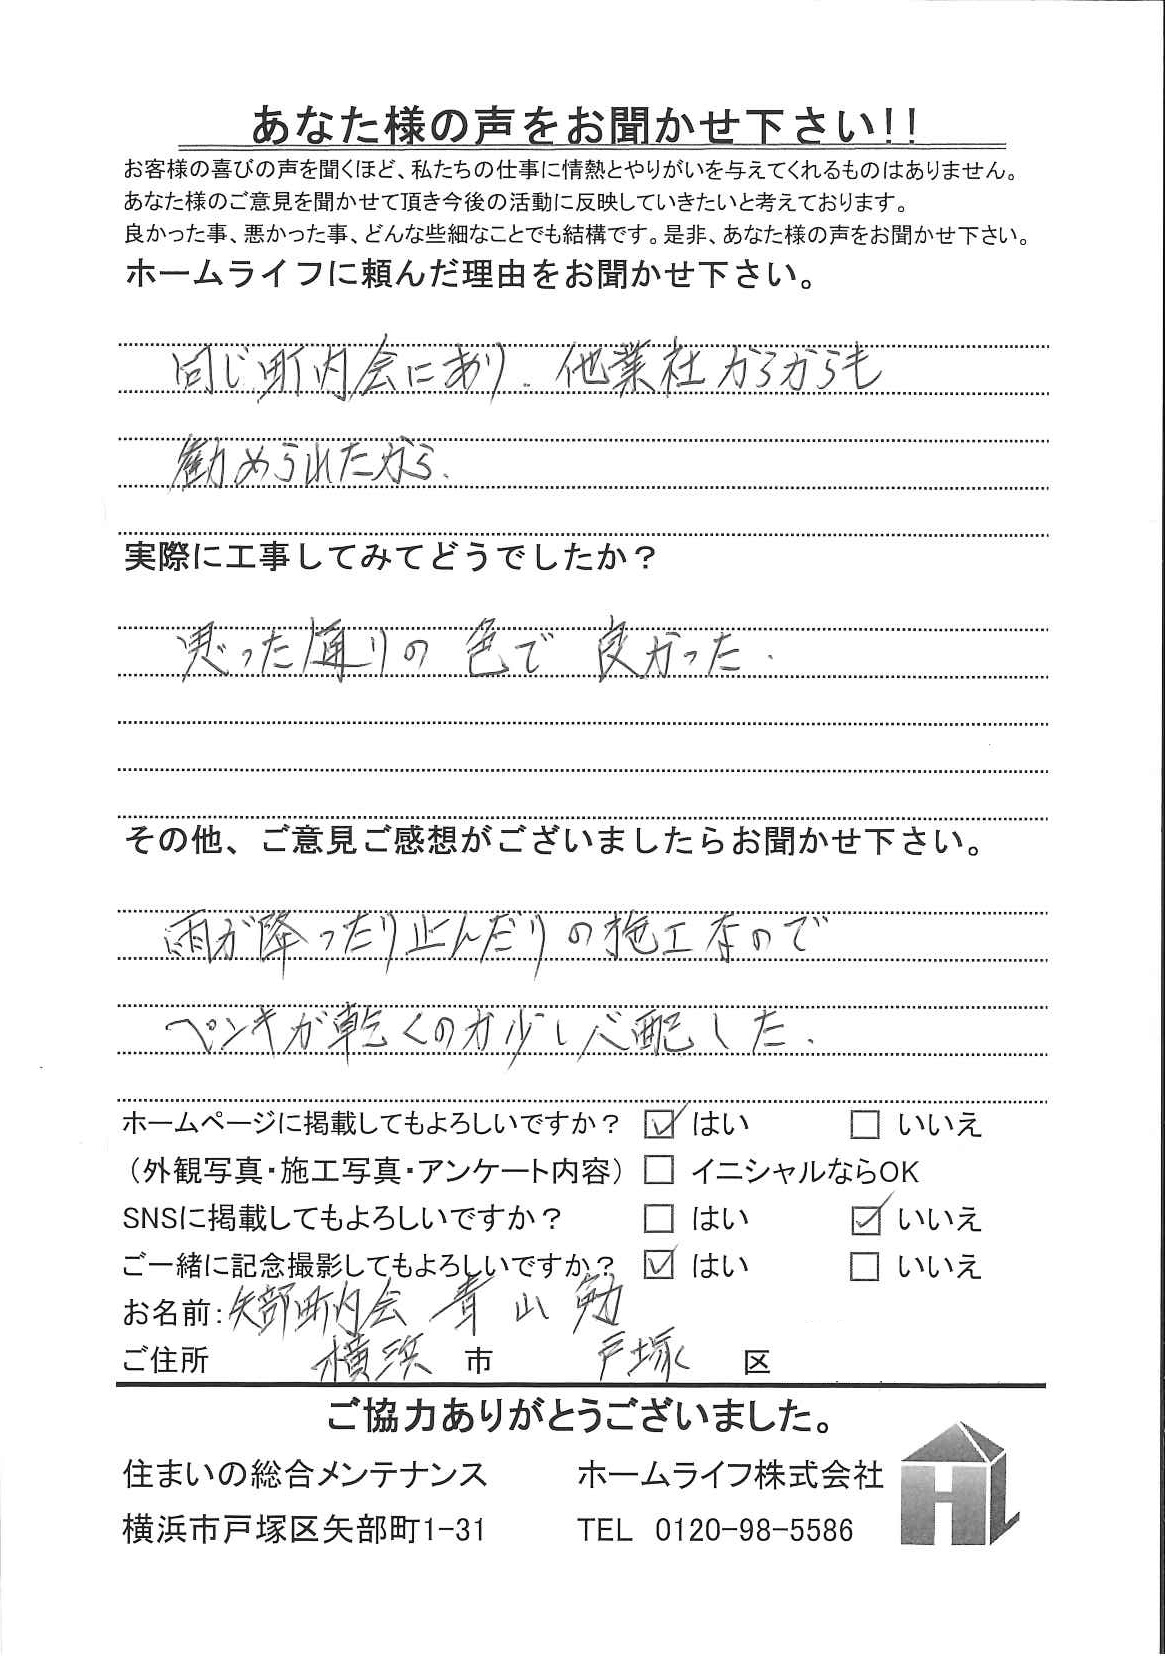 あなた様の声をお聞かせ下さい!!
お客様の喜びの声を聞くほど、私たちの仕事に情熱とやりがいを与えてくれるものはありません。
あなた様のご意見を聞かせて頂き今後の活動に反映していきたいと考えております。
良かった事、悪かった事、どんな些細なことでも結構です。是非、あなた様の声をお聞かせ下さい。
ホームライフに頼んだ理由をお聞かせ下さい。
同じ町内会にあり、他業社からからも
勧められたから、
実際に工事してみてどうでしたか？
思った通りの色で良かった.
その他、ご意見ご感想がございましたらお聞かせ下さい。
雨が降ったり止んだりの施工なので
ペンキが乾くのか少し心配した.
ホームページに掲載してもよろしいですか？ ☑ はい □ いいえ
（外観写真・施工写真・アンケート内容） □ イニシャルならOK
SNSに掲載してもよろしいですか？ □ はい ☑ いいえ
ご一緒に記念撮影してもよろしいですか？ ☑ はい □ いいえ
お名前: 矢部町内会 青山 勉
ご住所 横浜 市 戸塚 区
ご協力ありがとうございました。
住まいの総合メンテナンス ホームライフ株式会社
横浜市戸塚区矢部町1-31 TEL 0120-98-5586
HL